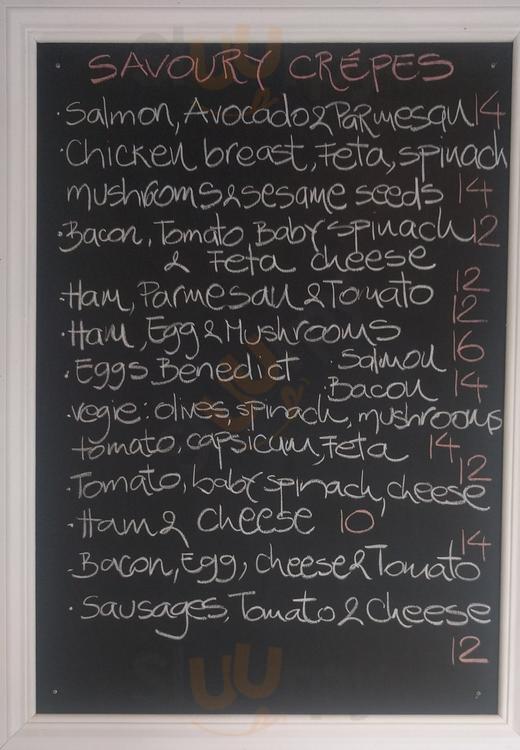 SAVOURY CRÉPES
· Salmon, Avocado & Parmesan 14
· Chicken breast, Feta, spinach
mushrooms & sesame seeds 14
· Bacon, Tomato Baby spinach 12
& Feta cheese
· Ham, Parmesan & Tomato 12
· Ham, Egg & Mushrooms 12
· Eggs Benedict · Salmon 16
· Bacon 14
· vegie: olives, spinach, mushrooms
tomato, capsicum, Feta 14
· Tomato, baby spinach, cheese 12
· Ham & cheese 10
- Bacon, Egg, cheese & Tomato 14
· Sausages, Tomato & Cheese
12